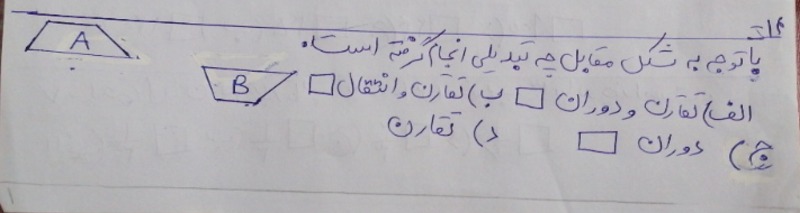 ۱۴ـ
باتوجه به شکل مقابل چه تبدیلی انجام گرفته است.
A
B
الف) تقارن و دوران □ ب) تقارن و انتقال □
ج) دوران □ د) تقارن